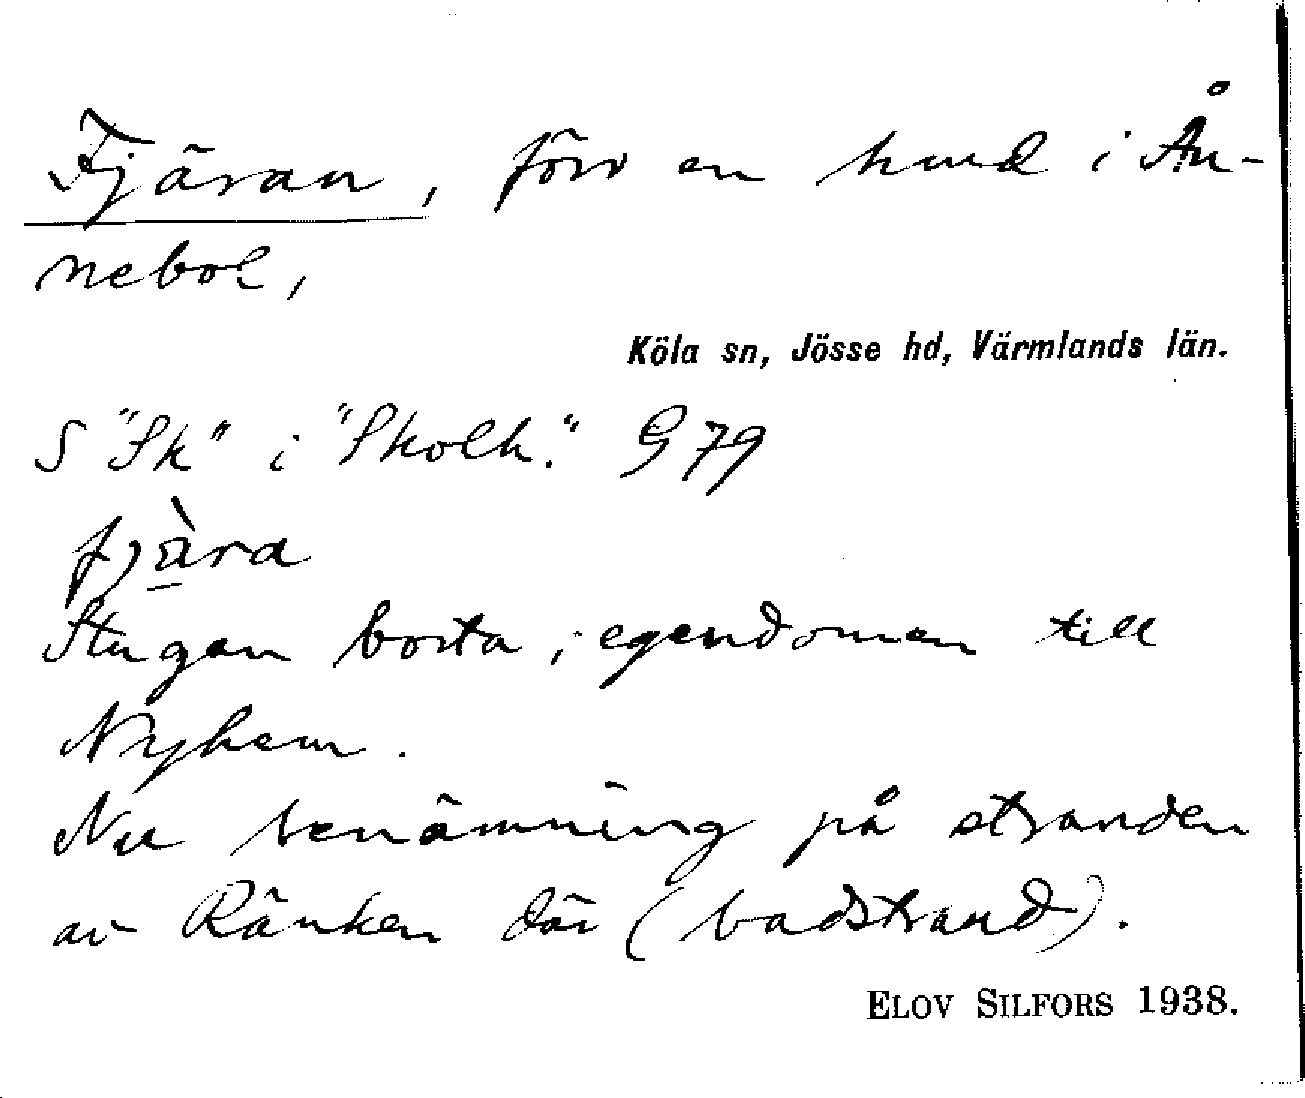 Fjäran, förr en hmd i Ån-
nebol,
Köla sn, Jösse hd, Värmlands län.
S "Sk" i "Skolh." G 79
fjä̀ra
Stugan borta, egendomen till
Nyhem.
Nu benämning på stranden
av Ränken där (badstrand).
ELOV SILFORS 1938.